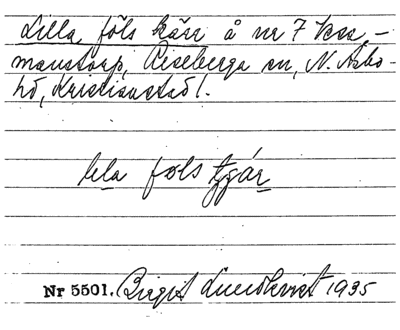 Lilla föls kärr å nr 7 Ross-
manstorp, Riseberga sn, N. Åsbo
hd, Kristianstad l.
lela fols tjár
Nr 5501. Birgit Lundkvist 1935